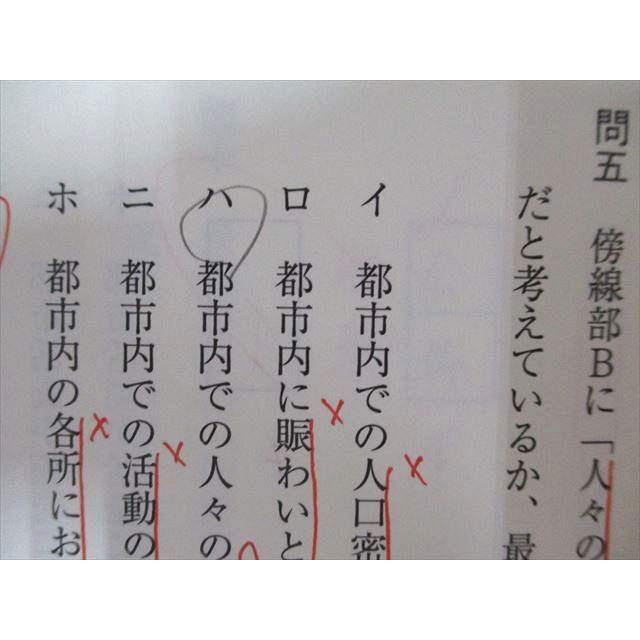 問五 傍線部Bに「人々の
だと考えているか、最
イ 都市内での人口密
ロ 都市内に賑わいと
ハ 都市内での人々の
ニ 都市内での活動の
ホ 都市内の各所にお